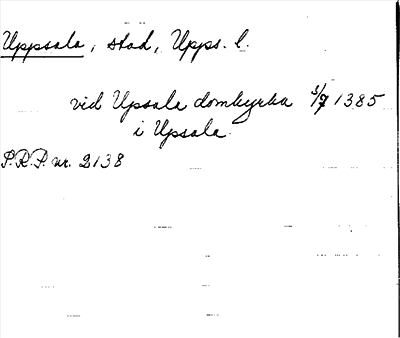 Uppsala, stad, Upps. l.
vid Upsala domkyrka 3/7 1385
i Upsala.
S.R.P. nr. 2138